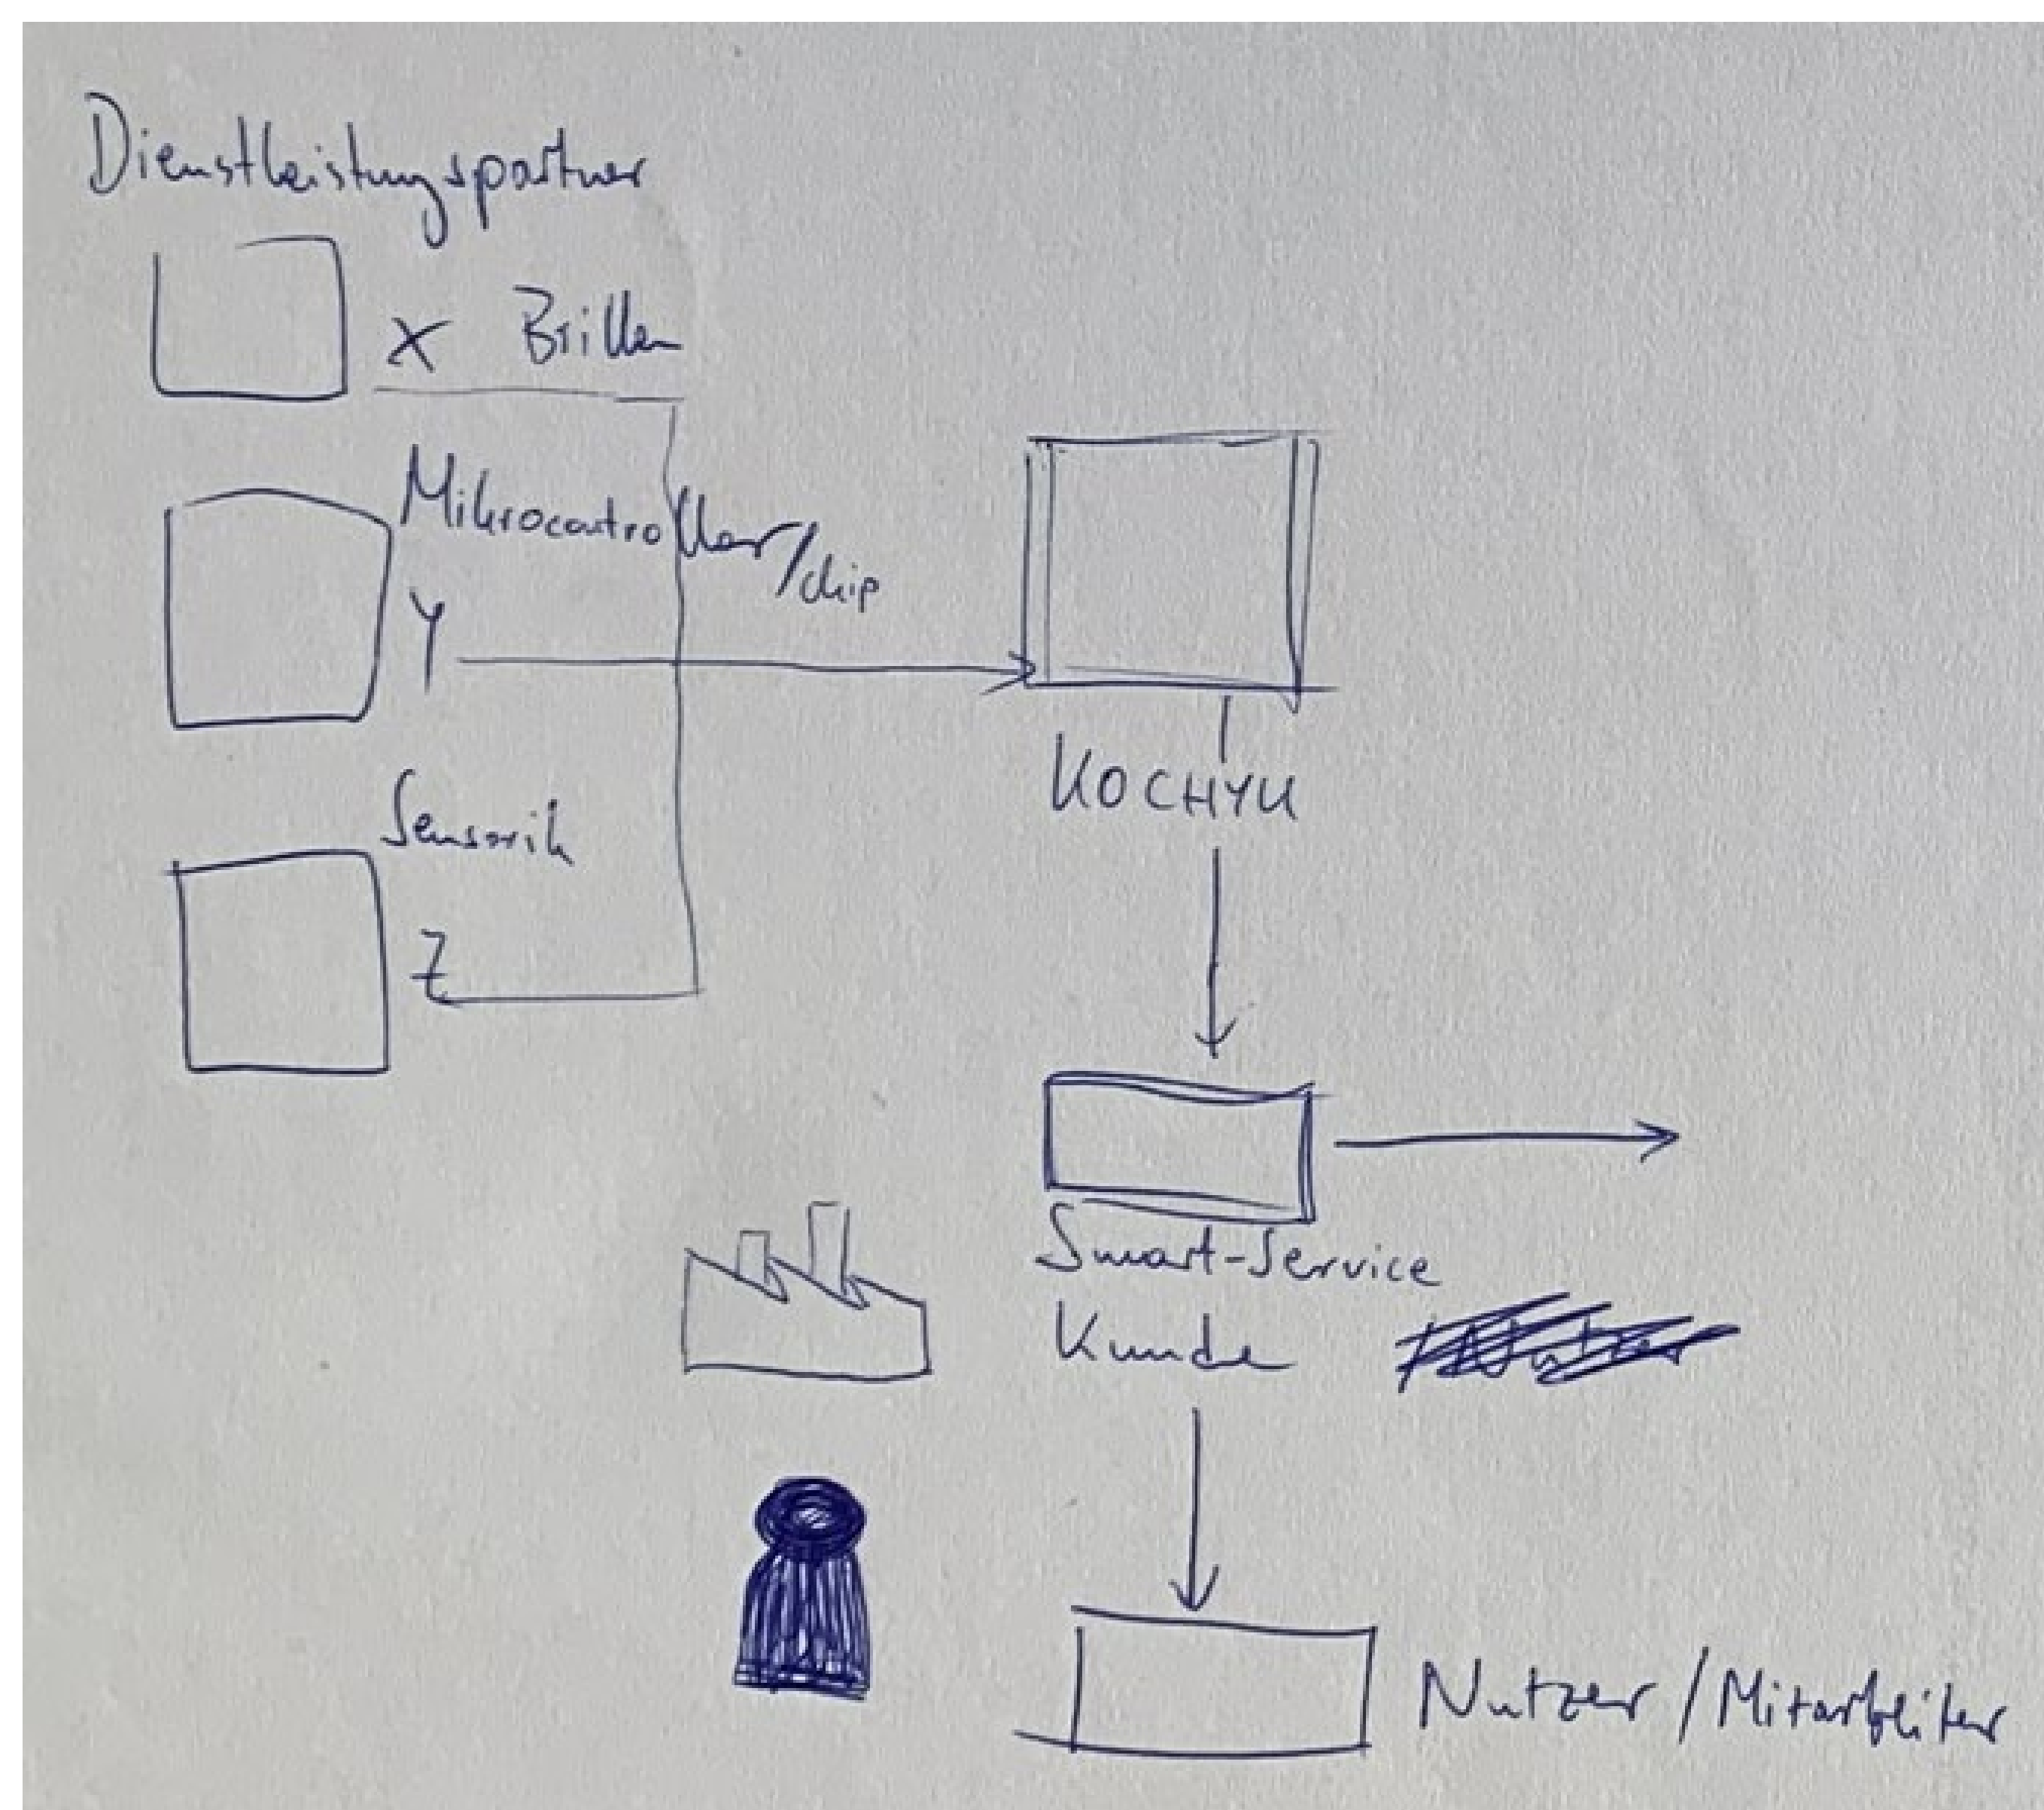 Dienstleistungspartner
X Brillen
Mikrocontroller/chip
Y
Sensorik
Z
KOCHYU
Smart-Service
Kunde
Nutzer/Mitarbeiter